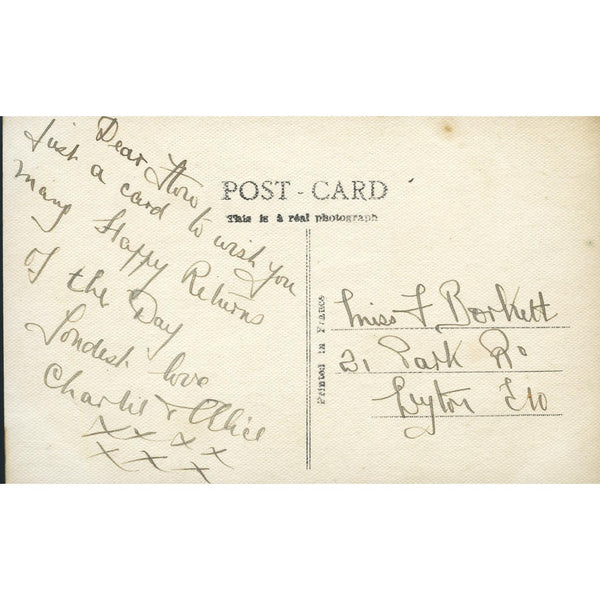 Dear Flow
Just a card to wish you
many Happy Returns
of the Day
Fondest love
Charlie & Alice
x x x x
x x x x
POST - CARD
This is a real photograph
Printed in France
Miss F Borkett
21 Park Rd
Leyton E10